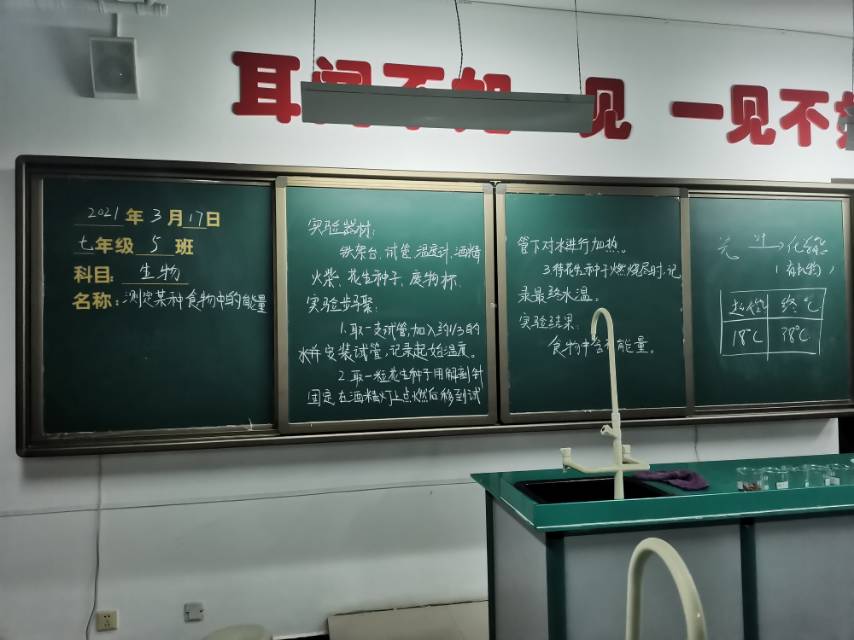 耳闻不如一见 一见不如
2021年3月17日
七年级5班
科目:生物
名称:测定某种食物中的能量
实验器材:
铁架台、试管、温度计、酒精
火柴、花生种子、废物杯、
实验步骤:
1.取一支试管,加入约1/3的
水并安装试管,记录起始温度。
2.取一粒花生种子用解剖针
固定在酒精灯上点燃后移到试
管下对水进行加热。
3.待花生种子燃烧尽时,记
录最终水温。
实验结果:
食物中含有能量。
光 叶→化能
(有机物)
起始℃ 终℃
18℃ 38℃